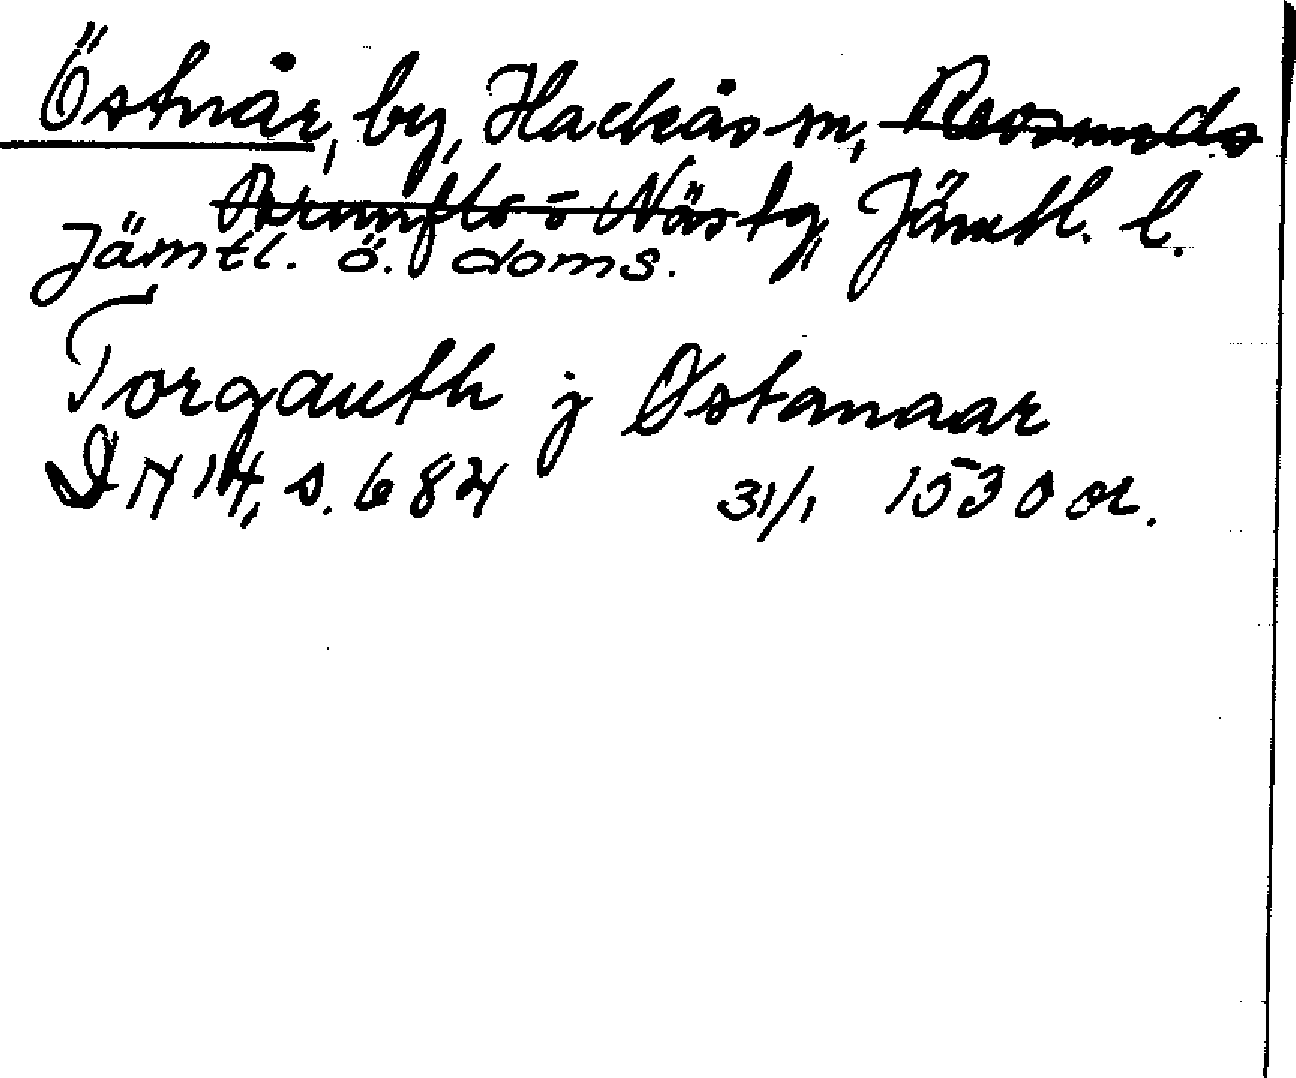 Östnår, by, Hackås sn, Revsunds
Brunflo o Näs tg, Jämtl. l.
Jämtl. ö. doms.
Torgauth j Østanaar
DN 14, s. 684 31/1 1530 or.